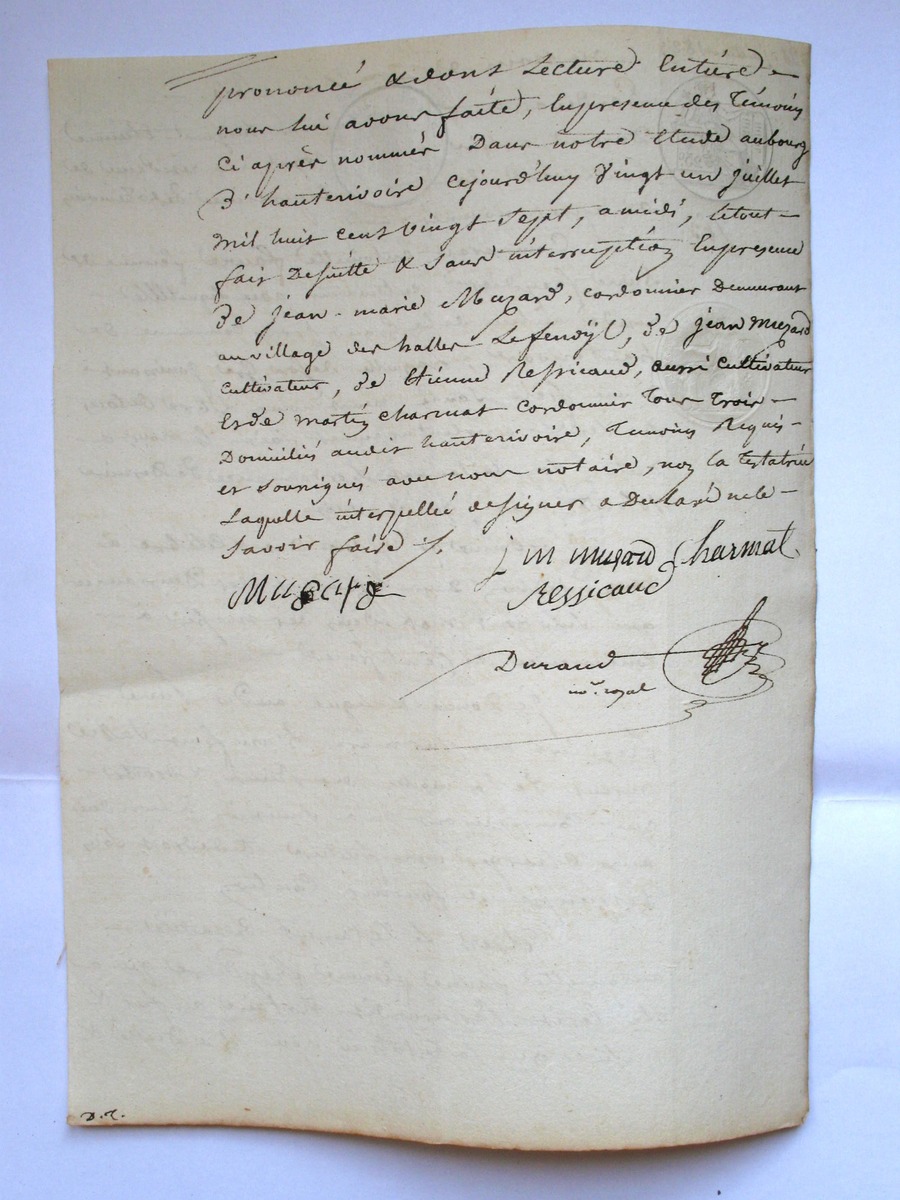 prononcé & dont Lecture Entière
nous lui avons faite, En presence des Témoins
Ci après nommés Dans notre Etude au bourg
D'hauterivoire Cejourd'huy Vingt un juillet
mil huit cent vingt Sept, a midi, letout
fait Desuitte & Sans interruption En presence
de jean-marie Muzard, cordonnier Demeurant
au village des halles Lefenoÿl, de jean muzard
cultivateur, de Etienne Ressicaud, aussi cultivateur
Et de martin charmat cordonnier Tous Trois
Domiciliés audit hauterivoire, Temoins Requis
et soussignés avec nous notaire, non la testatrice
Laquelle interpellée designer a Declaré nele
Savoir faire ./.
j m musard Charmat
Muzard Ressicaud
Durand
no.re royal
D.T.